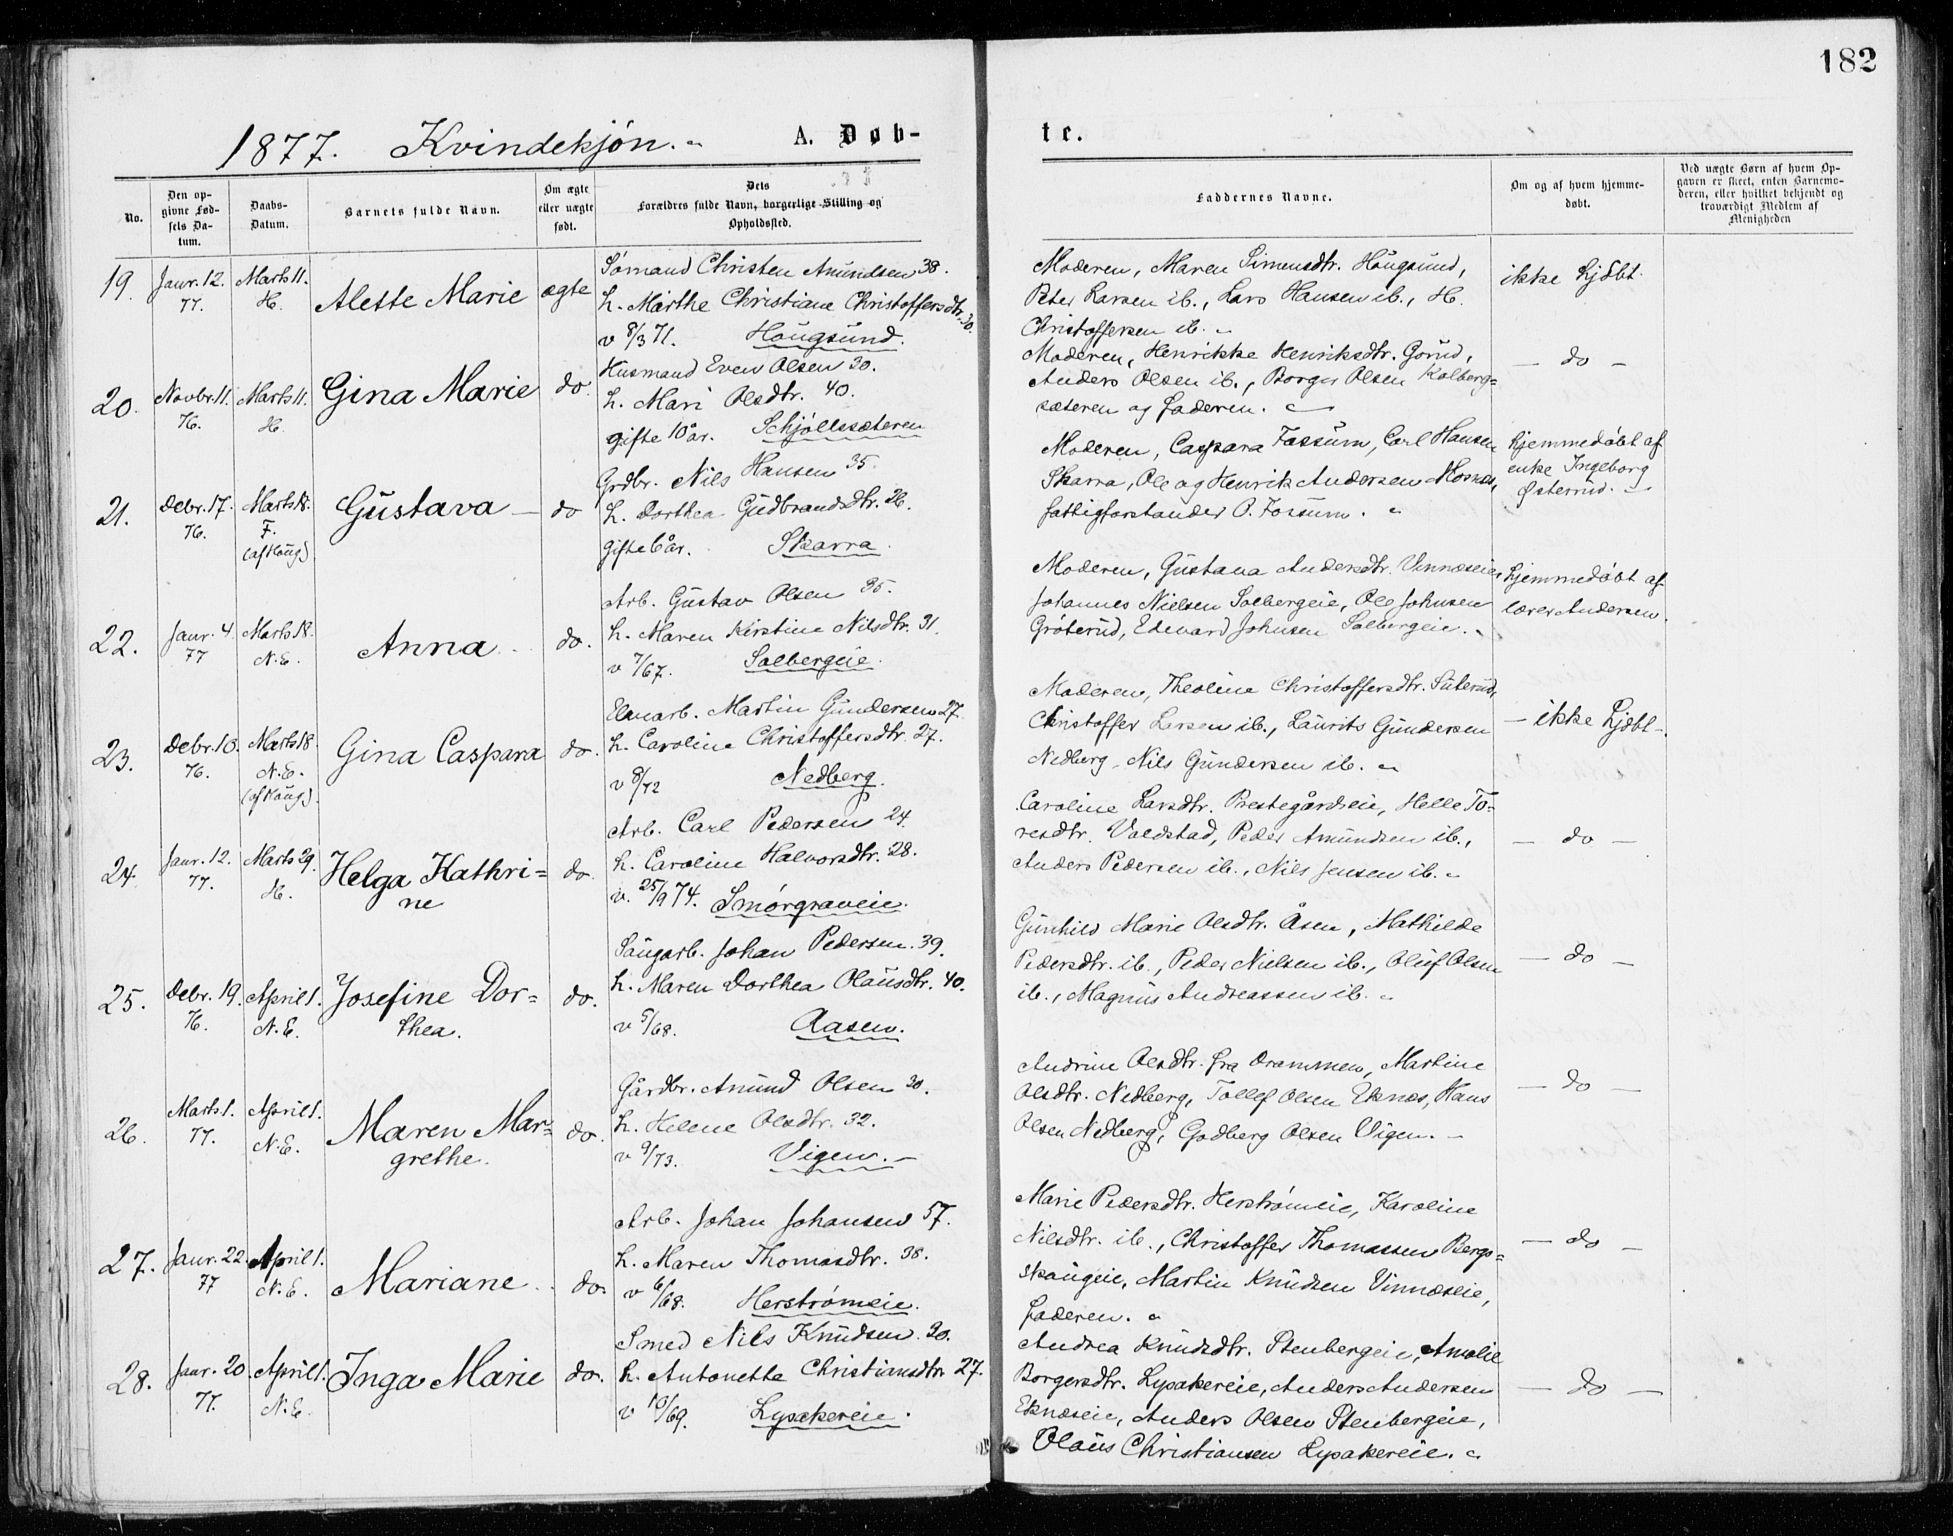 182
1877. Kvindekjøn.
A. Døb-
te.
No.
Den op-
givne Fød-
sels Da-
tum.
Daabs-
Datum.
Barnets fulde Navn.
Om ægte
eller uægte
født.
Dets
Forældres fulde Navn, borgerlige Stilling og
Opholdssted.
Faddernes Navne.
Om og af hvem hjemme-
døbt.
Ved uægte Børn af hvem Op-
gaven er skeet, enten Barnemo-
deren, eller hvilket bekjendt og
troværdigt Medlem af
Menigheden
19.
Janr. 12.
77.
Marts 11.
H.
Alette Marie
ægte
Sømand Christen Amundsen 38.
h. Marthe Christiane Christoffersdtr. 30.
v 8/3 71. Hougsund.
Moderen, Maren Simensdtr. Hougsund,
Peter Larsen ib., Lars Hansen ib., H.
Christoffersen ib.
ikke hjdbt.
20.
Novbr. 11.
76.
Marts 11.
H.
Gina Marie
do.
Husmand Even Olsen 30.
h. Mari Olsdtr. 40.
gifte 10 år. Schjøllssæteren
Moderen, Henrikke Henriksdtr. Gorud,
Anders Olsen ib., Borger Olsen Kolberg=
sæteren og faderen.
— do —
21.
Debr. 17.
76.
Marts 18.
F.
(af Houg)
Gustava —
do
Grdbr. Nils Hansen 35.
h. Dorthea Gudbrandsdtr. 26.
gifte 6 år. Skarra.
Moderen, Caspara Fossum, Carl Hansen
Skarra, Ole og Henrik Andersen Mosnæs,
fattigforstander P. Fossum.
hjemmedøbt af
enke Ingeborg
Østerud.
22.
Janr. 4.
77
Marts 18.
N.E.
Anna
do.
Arb. Gustav Olsen 35.
h. Maren Kirstine Nilsdtr. 31.
v 7/67. Solbergeie.
Moderen, Gustava Andersdtr. Vinnæseie,
Johannes Nielsen Solbergeie, Ole Johnsen
Grøterud, Edevard Johnsen Solbergeie.
hjemmedøbt af
lærer Andersen.
23.
Debr. 10.
76.
Marts 18.
N.E.
(af Houg).
Gina Caspara
do.
Elvearb. Martin Gundersen 27.
h. Caroline Christoffersdtr. 27.
v 8/72 Nedberg.
Moderen, Theoline Christoffersdtr. Suterud,
Christoffer Larsen ib., Laurits Gundersen
Nedberg, Nils Gundersen ib.
— ikke hjdbt —.
24.
Janr. 12.
77.
Marts 29.
H.
Helga Kathri=
ne
do.
Arb. Carl Pedersen 24.
h. Caroline Halvorsdtr. 28.
v. 25/9 74. Smørgraveie.
Caroline Larsdtr. Prestegårdseie, Helle To=
resdtr. Valdstad, Peder Amundsen ib.,
Anders Pedersen ib., Nils Jensen ib.
— do —
25.
Debr. 19.
76.
April 1.
N.E.
Josefine Dor=
thea.
do.
Saugarb. Johan Pedersen. 39.
h. Maren Dorthea Olausdtr. 40.
v 5/68. Aasen.
Gunhild Marie Olsdtr. Åsen, Mathilde
Pedersdtr. ib., Peder Nielsen ib., Oluf Olsen
ib., Magnus Andreassen ib.
— do —
26.
Marts 1.
77.
April 1.
N.E.
Maren Mar=
grethe.
do.
Gårdbr. Amund Olsen 30.
h. Helene Olsdtr. 32.
v 9/73. Vigen. —
Andrine Olsdtr. fra Drammen, Martine
Olsdtr. Nedberg, Tollef Olsen Eknæs, Hans
Olsen Nedberg, Godberg Olsen Vigen. —
— do —
27.
Janr. 22.
77
April 1.
N.E.
Mariane
do.
Arb. Johan Johansen 57.
h. Maren Thomasdtr. 38.
v 6/68. Herstrømeie.
Marie Pedersdtr. Herstrømeie, Karoline
Nilsdtr. ib., Christoffer Thomassen Bergs=
skougeie, Martin Knudsen Vinnæseie,
faderen.
— do —
28.
Janr. 20
77.
April 1.
N.E.
Inga Marie
do.
Smed Nils Knudsen. 30.
h. Antonette Christiansdtr. 27.
v 10/69. Lysakereie.
Andrea Knudsdtr. Stenbergeie, Amalie
Borgersdtr. Lysakereie, Anders Andersen
Eknæseie, Anders Olsen Stenbergeie,
Olaus Christiansen Lysakereie.
— do —